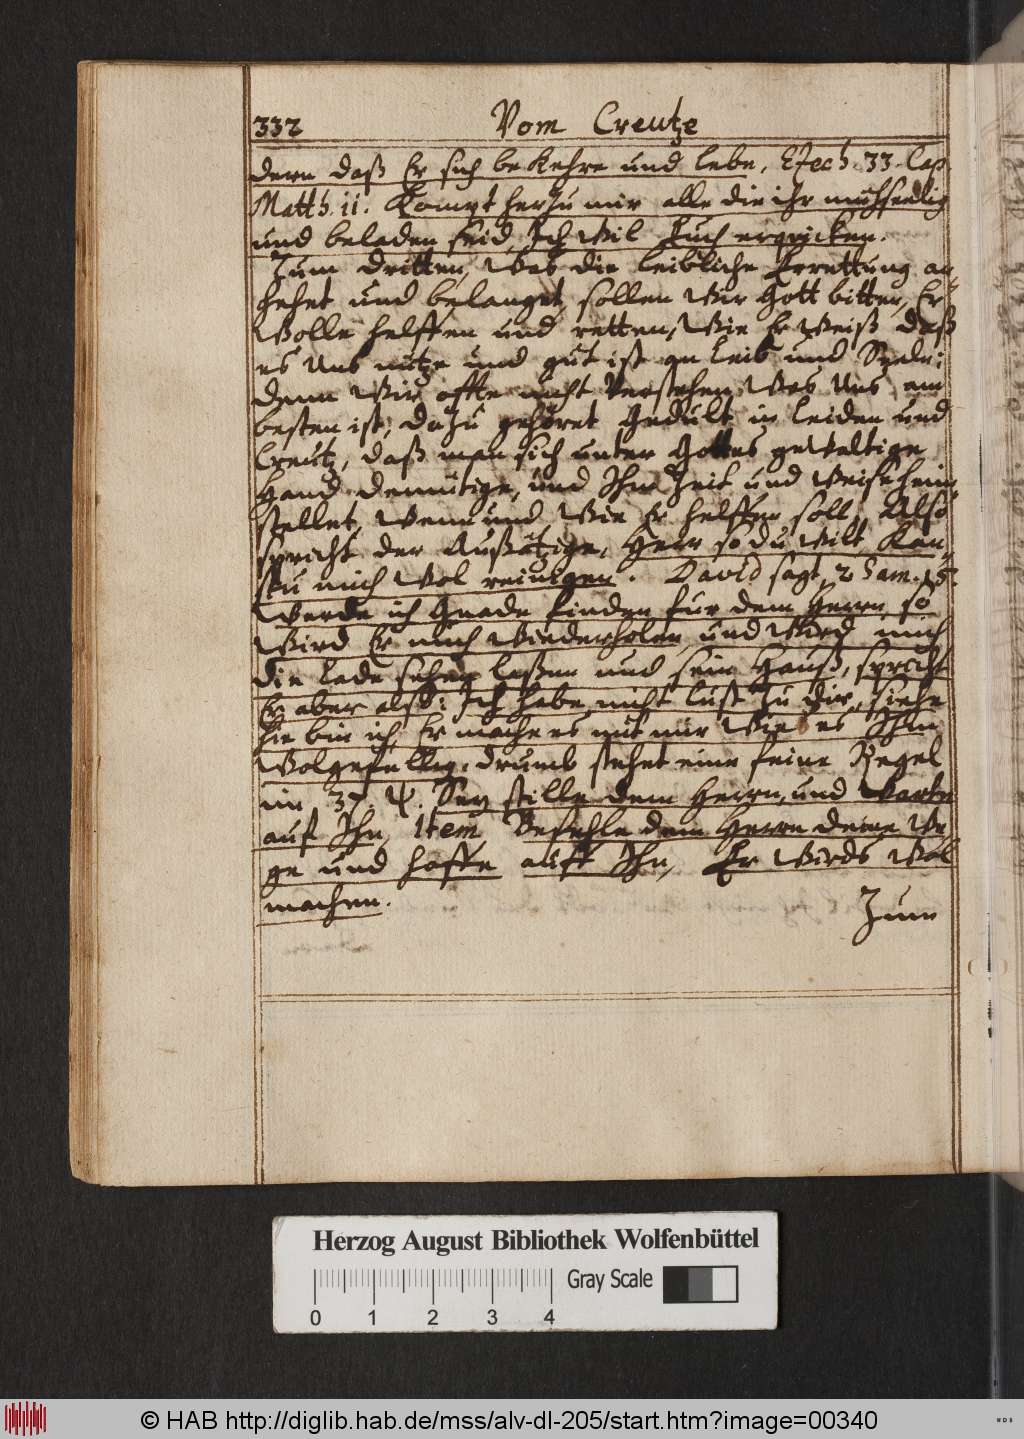 332 Vom Creutze
dern daß Er sich bekehre und lebe, Ezech. 33. Cap.
Matth. 11. Kompt her zu mir alle die ihr muhseelig
und beladen seid, Ich wil Euch erquicken.
Zum dritten, was die leibliche Errettung an
gehet und belanget, sollen wir Gott bitten, Er
wolle helffen und retten, wie Er weiß daß
es uns nütze und gut ist an Leib und Seele:
denn wir offte nicht verstehen was uns am
besten ist, dazu gehöret Gedult in leiden und
Creutz, daß man sich unter Gottes gewaltige
Hand demütige, und Ihm Zeit und Weise heim
stellet, wenn und wie Er helffen soll. Also
spricht der Außätzige, Herr so du wilt, Kan-
stu mich wol reinigen. David sagt, 2 Sam. 15.
Werde ich Gnade finden fur dem Herrn, so
wird Er mich wiederholen, und wird mich
die Lade sehen laßen und sein Hauß, spricht
Er aber also: Ich habe nicht lust zu dir, siehe
hie bin ich, Er mache es mit mir wie es Ihm
wolgefellig. drumb stehet eine feine Regel
im 37. Ps. Sey stille dem Herrn, und warte
auf Ihn, Item Befehle dem Herrn deine We
ge und hoffe auff Ihn, Er wirds wol
machen.
Zum
Herzog August Bibliothek Wolfenbüttel
Gray Scale
0 1 2 3 4
© HAB http://diglib.hab.de/mss/alv-dl-205/start.htm?image=00340